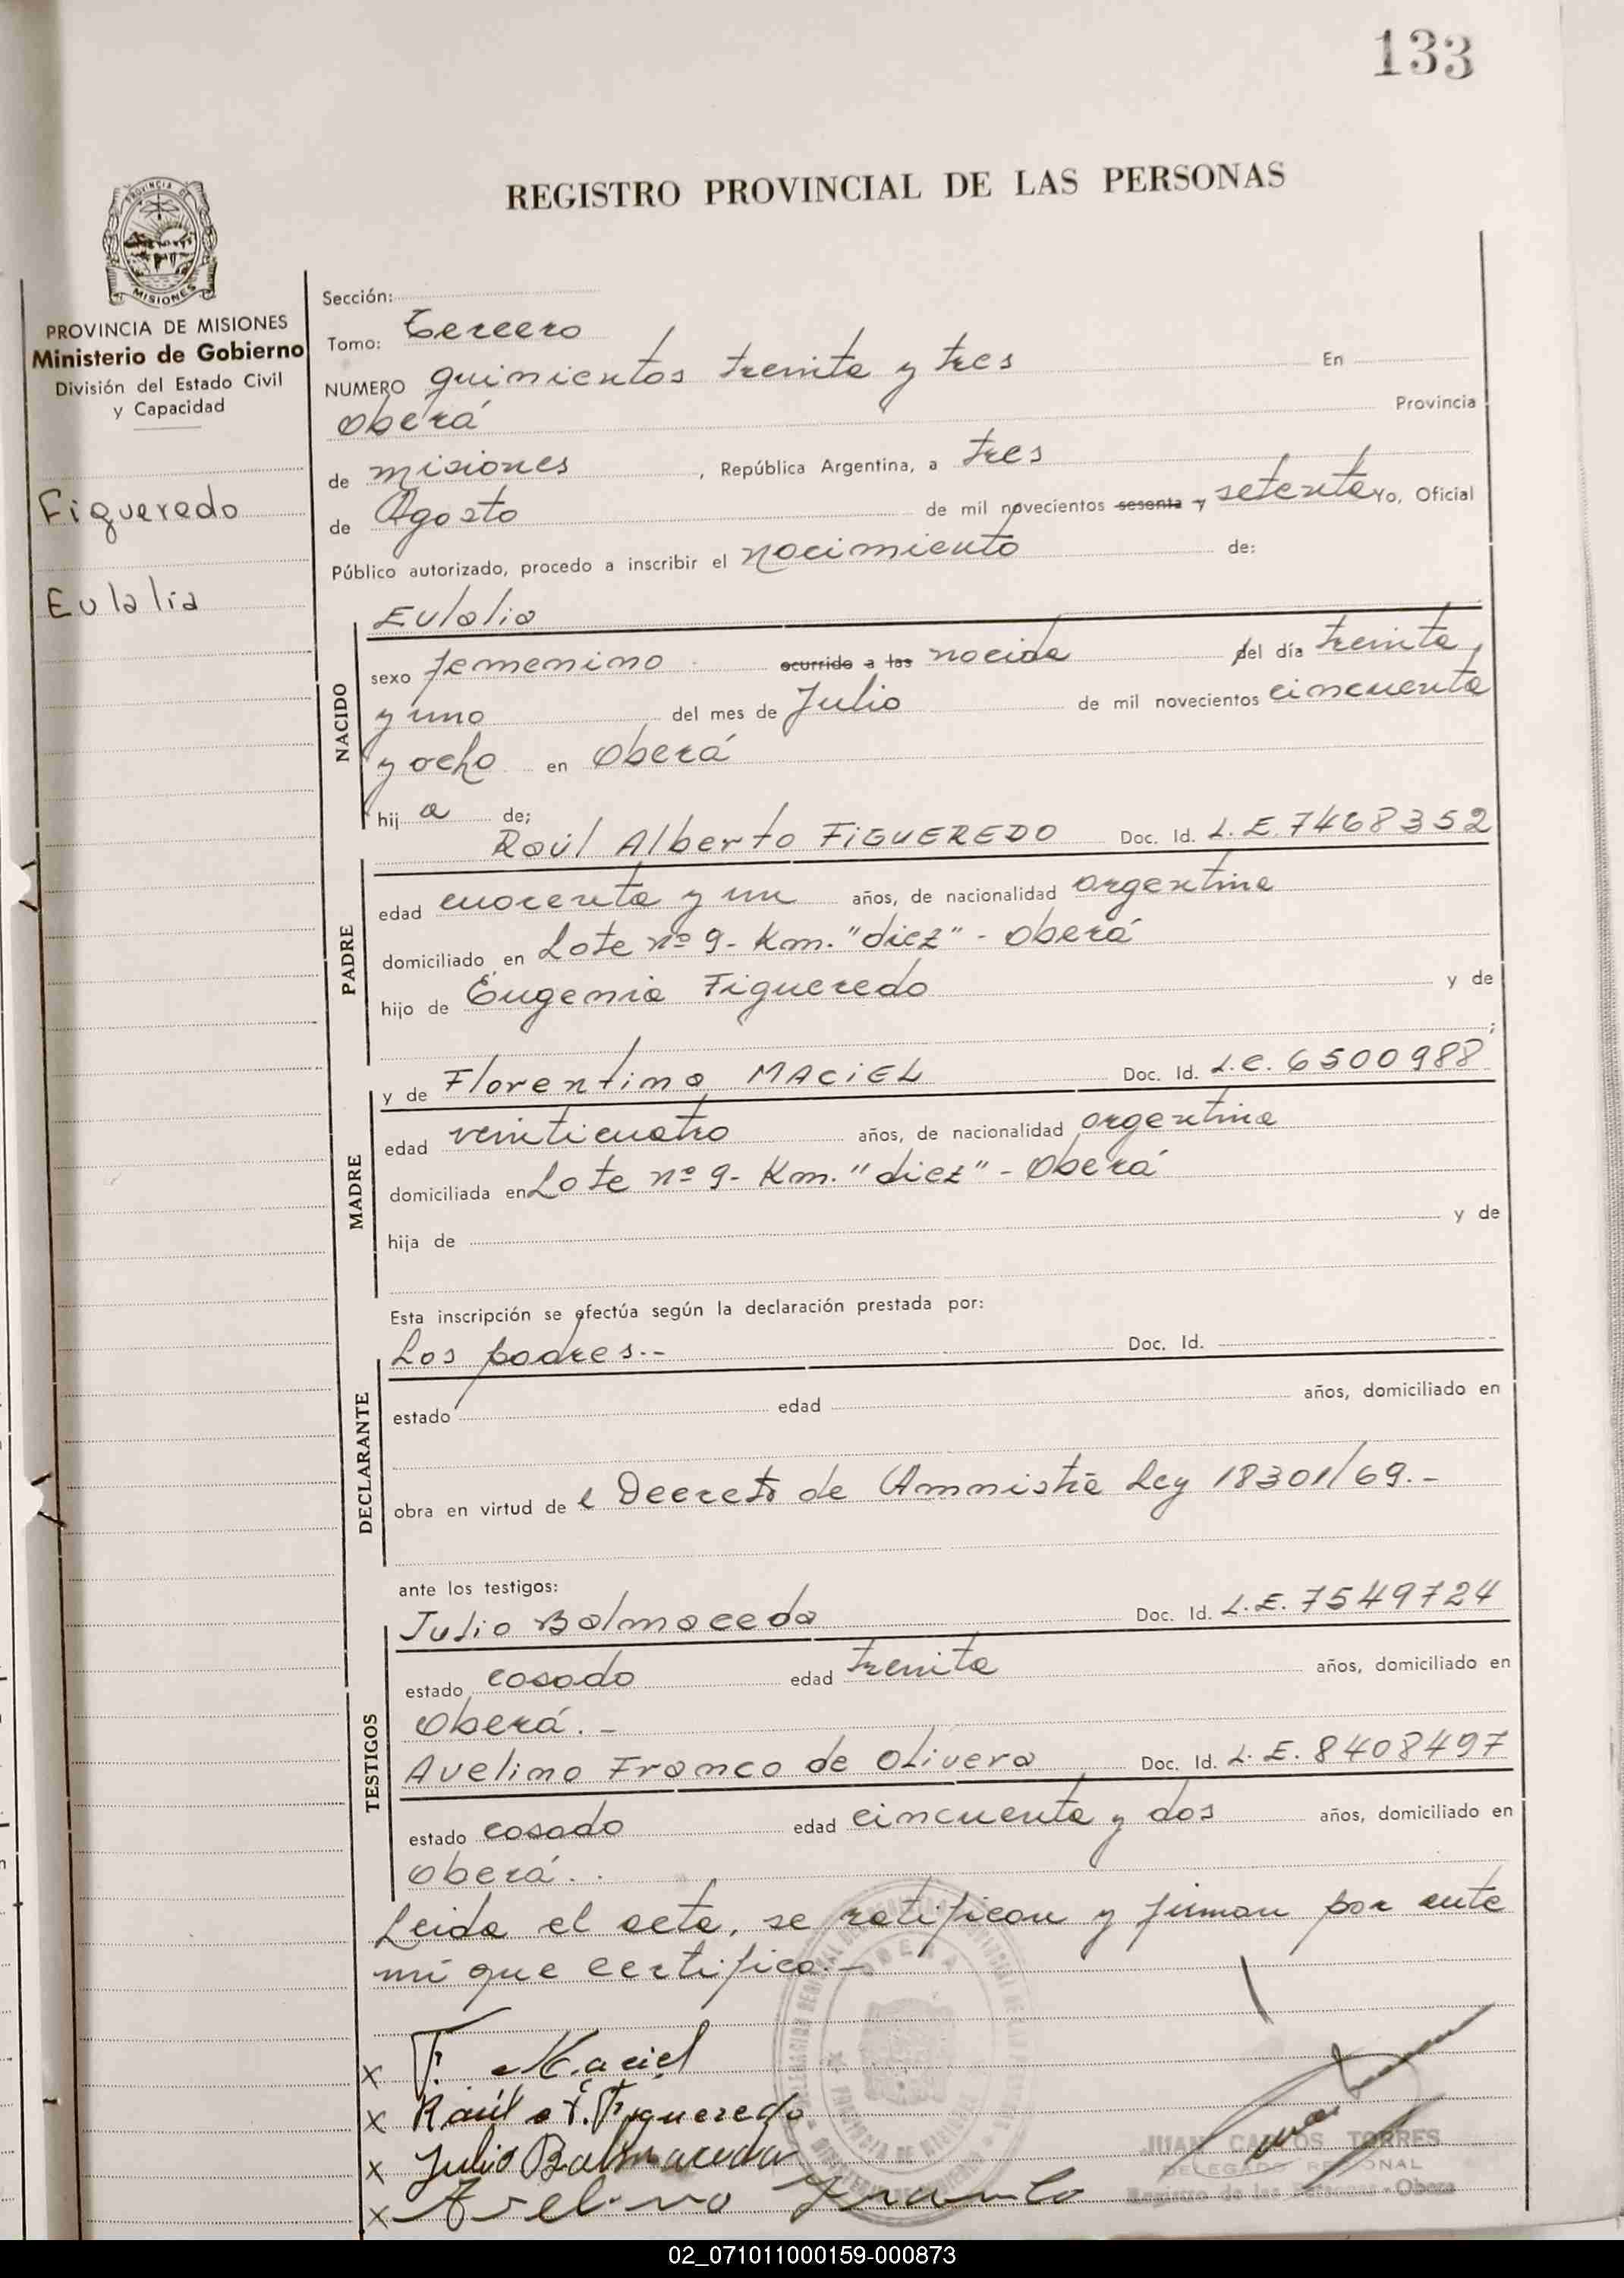 133
REGISTRO PROVINCIAL DE LAS PERSONAS
PROVINCIA DE
MISIONES
PROVINCIA DE MISIONES
Ministerio de Gobierno
División del Estado Civil
y Capacidad
Figueredo
Eulalia
Sección:
Tomo: Tercero
NUMERO quinientos treinta y tres En
Oberá Provincia
de Misiones , República Argentina, a tres
de Agosto de mil novecientos sesenta y setenta Yo, Oficial
Público autorizado, procedo a inscribir el nacimiento de:
NACIDO
Eulalia
sexo femenino ocurrido a las nacida del día treinta
y uno del mes de Julio de mil novecientos cincuenta
y ocho en Oberá
hij a de;
PADRE
Raúl Alberto FIGUEREDO Doc. Id. L.E. 7468352
edad cuarenta y un años, de nacionalidad argentina
domiciliado en Lote nº 9- Km. "diez" - Oberá
hijo de Eugenia Figueredo y de
;
MADRE
y de Florentina MACIEL Doc. Id. L.C. 6500988
edad veinticuatro años, de nacionalidad argentina
domiciliada en Lote nº 9- Km. "diez" - Oberá
hija de y de
Esta inscripción se efectúa según la declaración prestada por:
DECLARANTE
Los padres.- Doc. Id.
estado edad años, domiciliado en
obra en virtud de l Decreto de Amnistía Ley 18301/69.-
ante los testigos:
TESTIGOS
Julio Balmaceda Doc. Id. L.E. 7549724
estado casado edad treinta años, domiciliado en
Oberá.-
Avelino Franco de Olivera Doc. Id. L.E. 8408497
estado casado edad cincuenta y dos años, domiciliado en
Oberá..
Leida el acta, se ratifican y firman por ante
mí que certifico.-
x F. Maciel
x Raúl A. Figueredo
x Julio Balmaceda
x Avelino Franco
OBERA
PROVINCIA DE MISIONES
JUAN CARLOS TORRES
DELEGADO REGIONAL
Registro de las Personas - Oberá
02_071011000159-000873